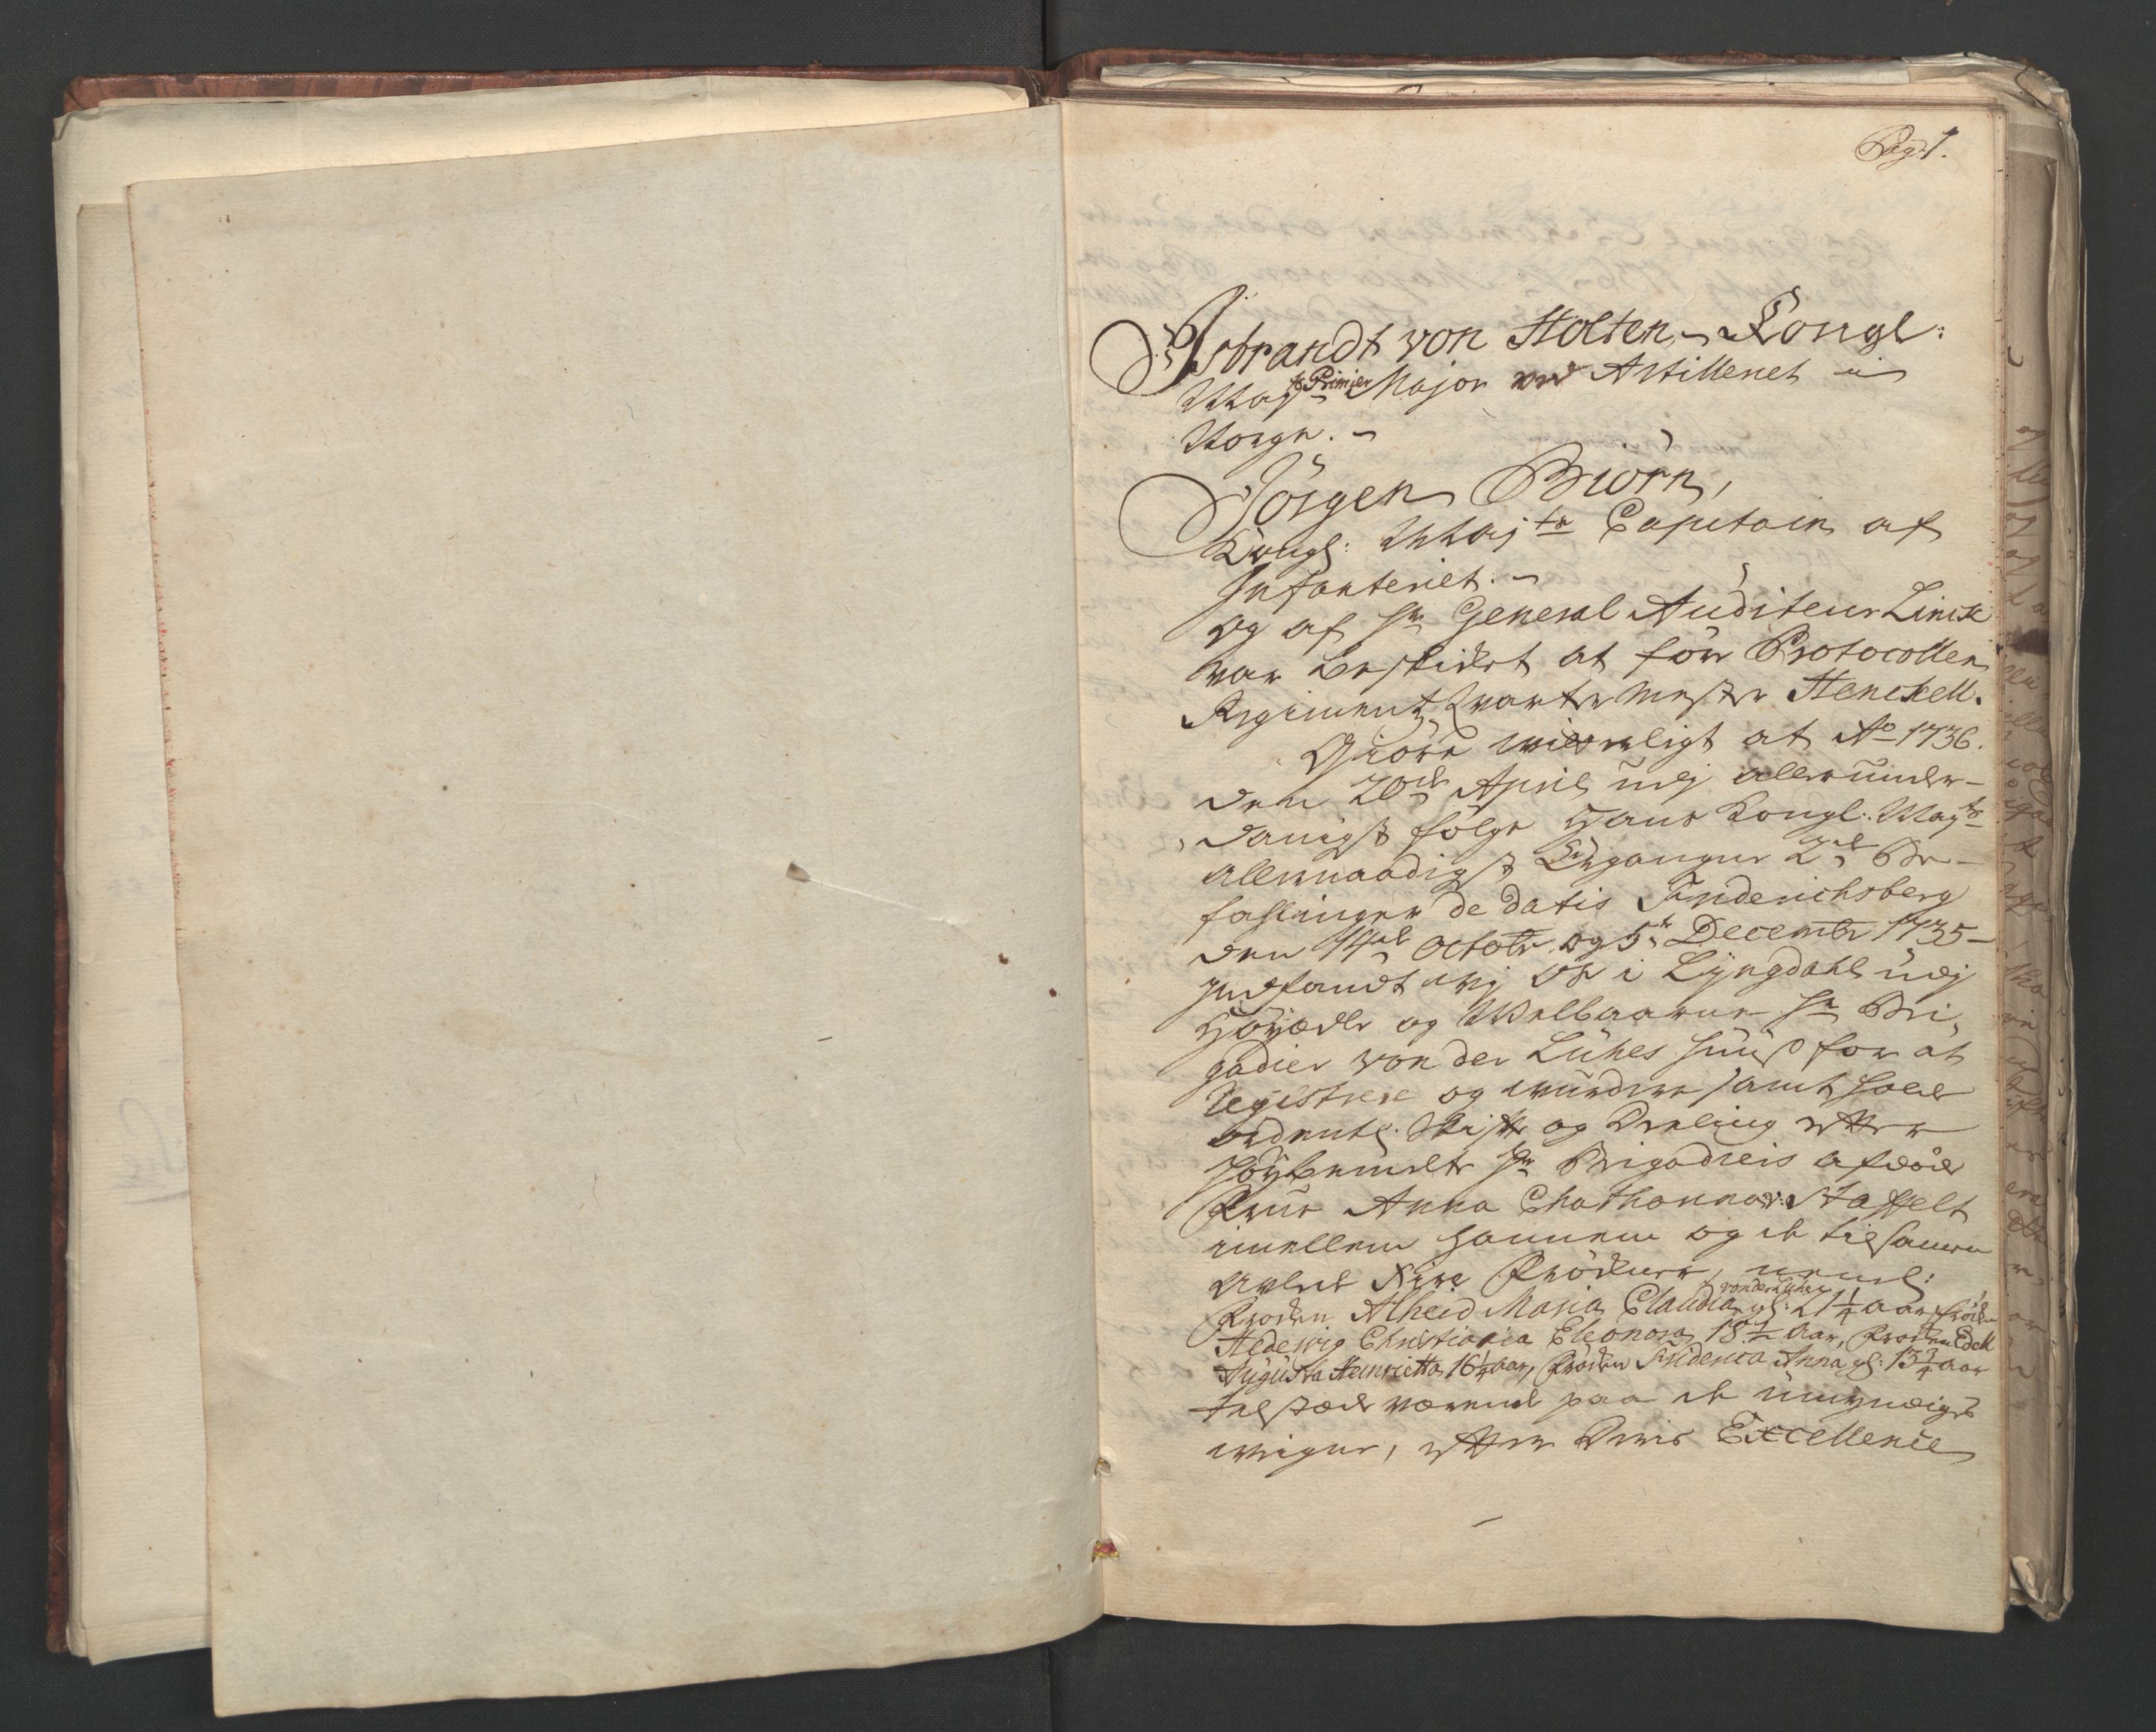 Pag: 1.
Isbrandt von Holten, Kongl:
May.ts Primier Major ved Artilleriet i
Norge.
Jörgen Biörn,
Kongl: May.ts Capitain af
Infanteriet.
og af Hr General Auditeur Linck
var beskicket at före Protocollen
Regiments Qvarteer Mester Henckell.
Giöre witterligt at Ao 1736.
den 20de April udj allerunder-
danigst fölge Hans Kongl: May.ts
allernaadigst Ergangne 2de Be-
falinger de datis Friderichsberg
den 14de Octobr og 5te Decembr 1735
indfandt wj os i Lyngdahl udj
Höyædle og Welbaarne Hr Bri-
gadier von der Lühes Huus for at
Registrere og wurdere samt holde
ordentl. Skifte og Deeling efter
Höybemelte Hr Brigadieris afdöde
Frue Anna Chatharina Staffelt
imellem hannem og de tilsamen
avlede Fire Frökener, neml:
Fröcken Alheid Maria Claudia von der Lühe gl: 21 1/4 aar, Fröcken
Hedewig Christiania Eleonora 18 1/2 Aar, Fröcken Edel
Augusta Heinrietta 16 1/4 aar, Fröcken Friderica Anna gl: 13 3/4 aar
tilstæde værende paa de umyndiges
weigne, efter Deris Excellence